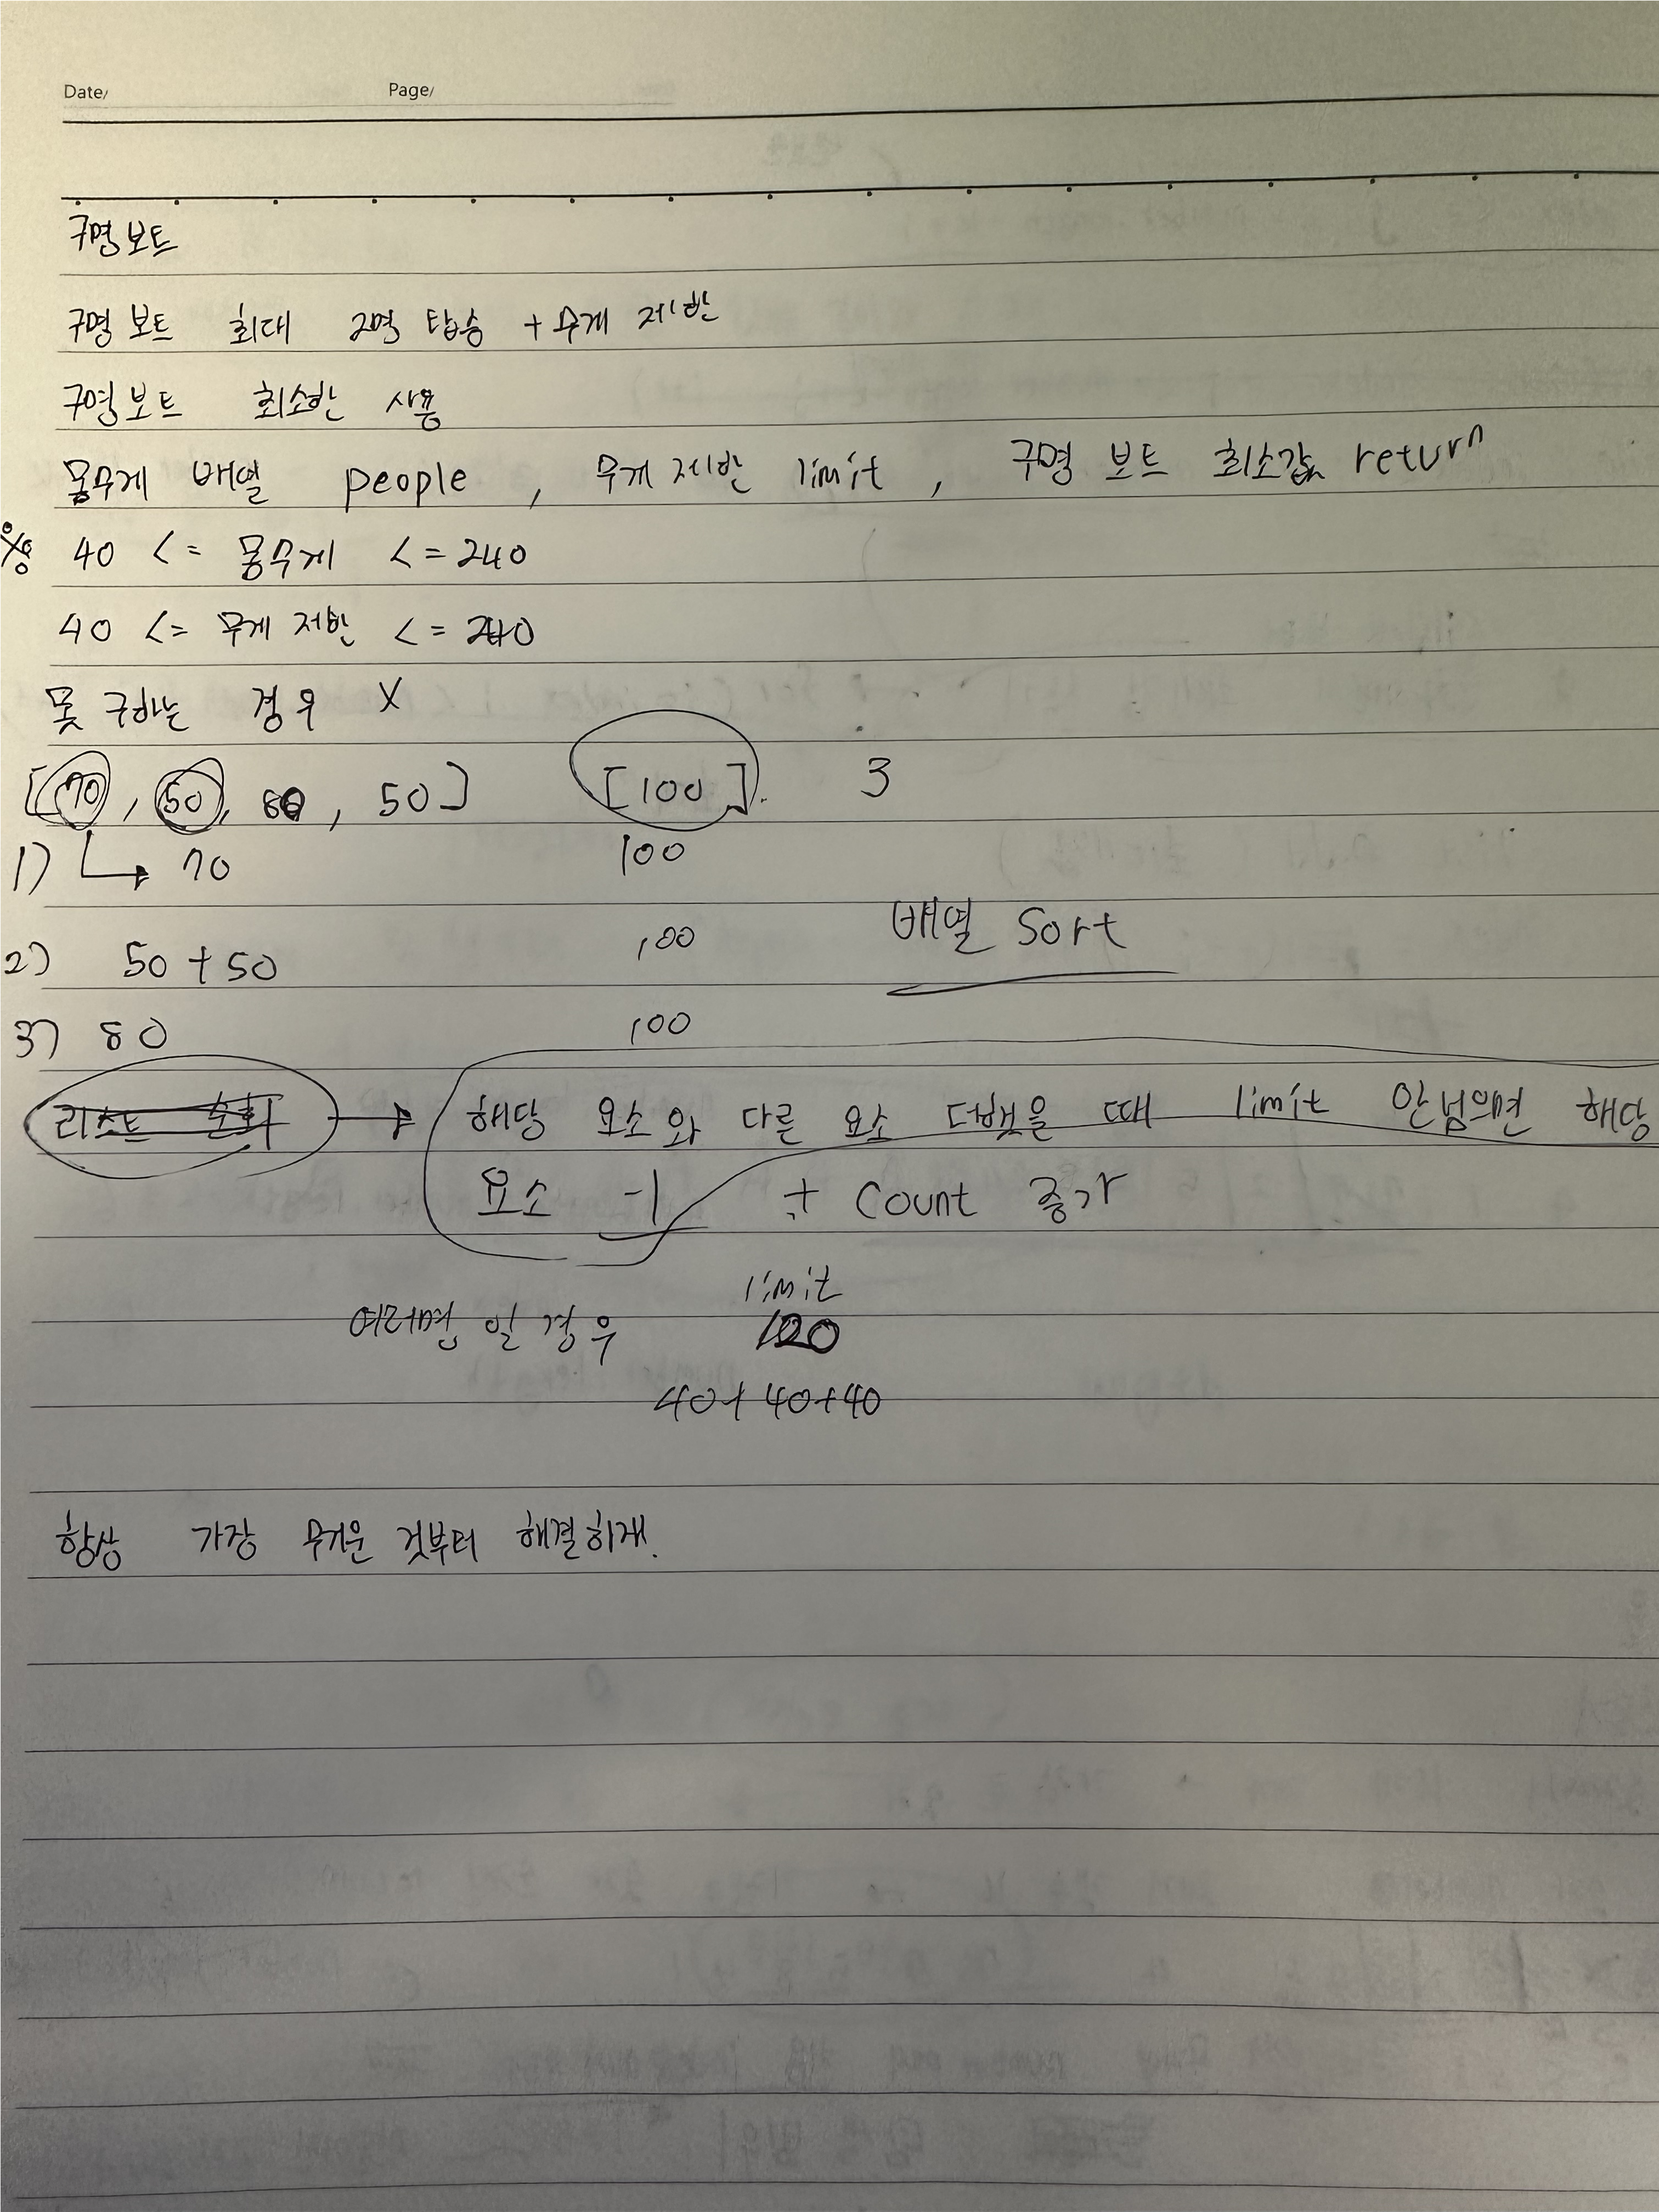 Date/ Page/
구명보트
구명보트 최대 2명 탑승 + 무게 제한
구명보트 최소한 사용
몸무게 배열 people, 무게 제한 limit, 구명 보트 최소값 return
40 <= 몸무게 <= 240
40 <= 무게 제한 <= 240
못 구하는 경우 X
[70, 50, 80, 50] [100] 3
1) → 70 100
2) 50 + 50 100
배열 Sort
3) 80 100
리스트 순회 → 해당 요소와 다른 요소 더했을 때 limit 안넘으면 해당
요소 -1 + Count 증가
limit
여러명 일 경우 120
40 + 40 + 40
항상 가장 무거운 것부터 해결하재.